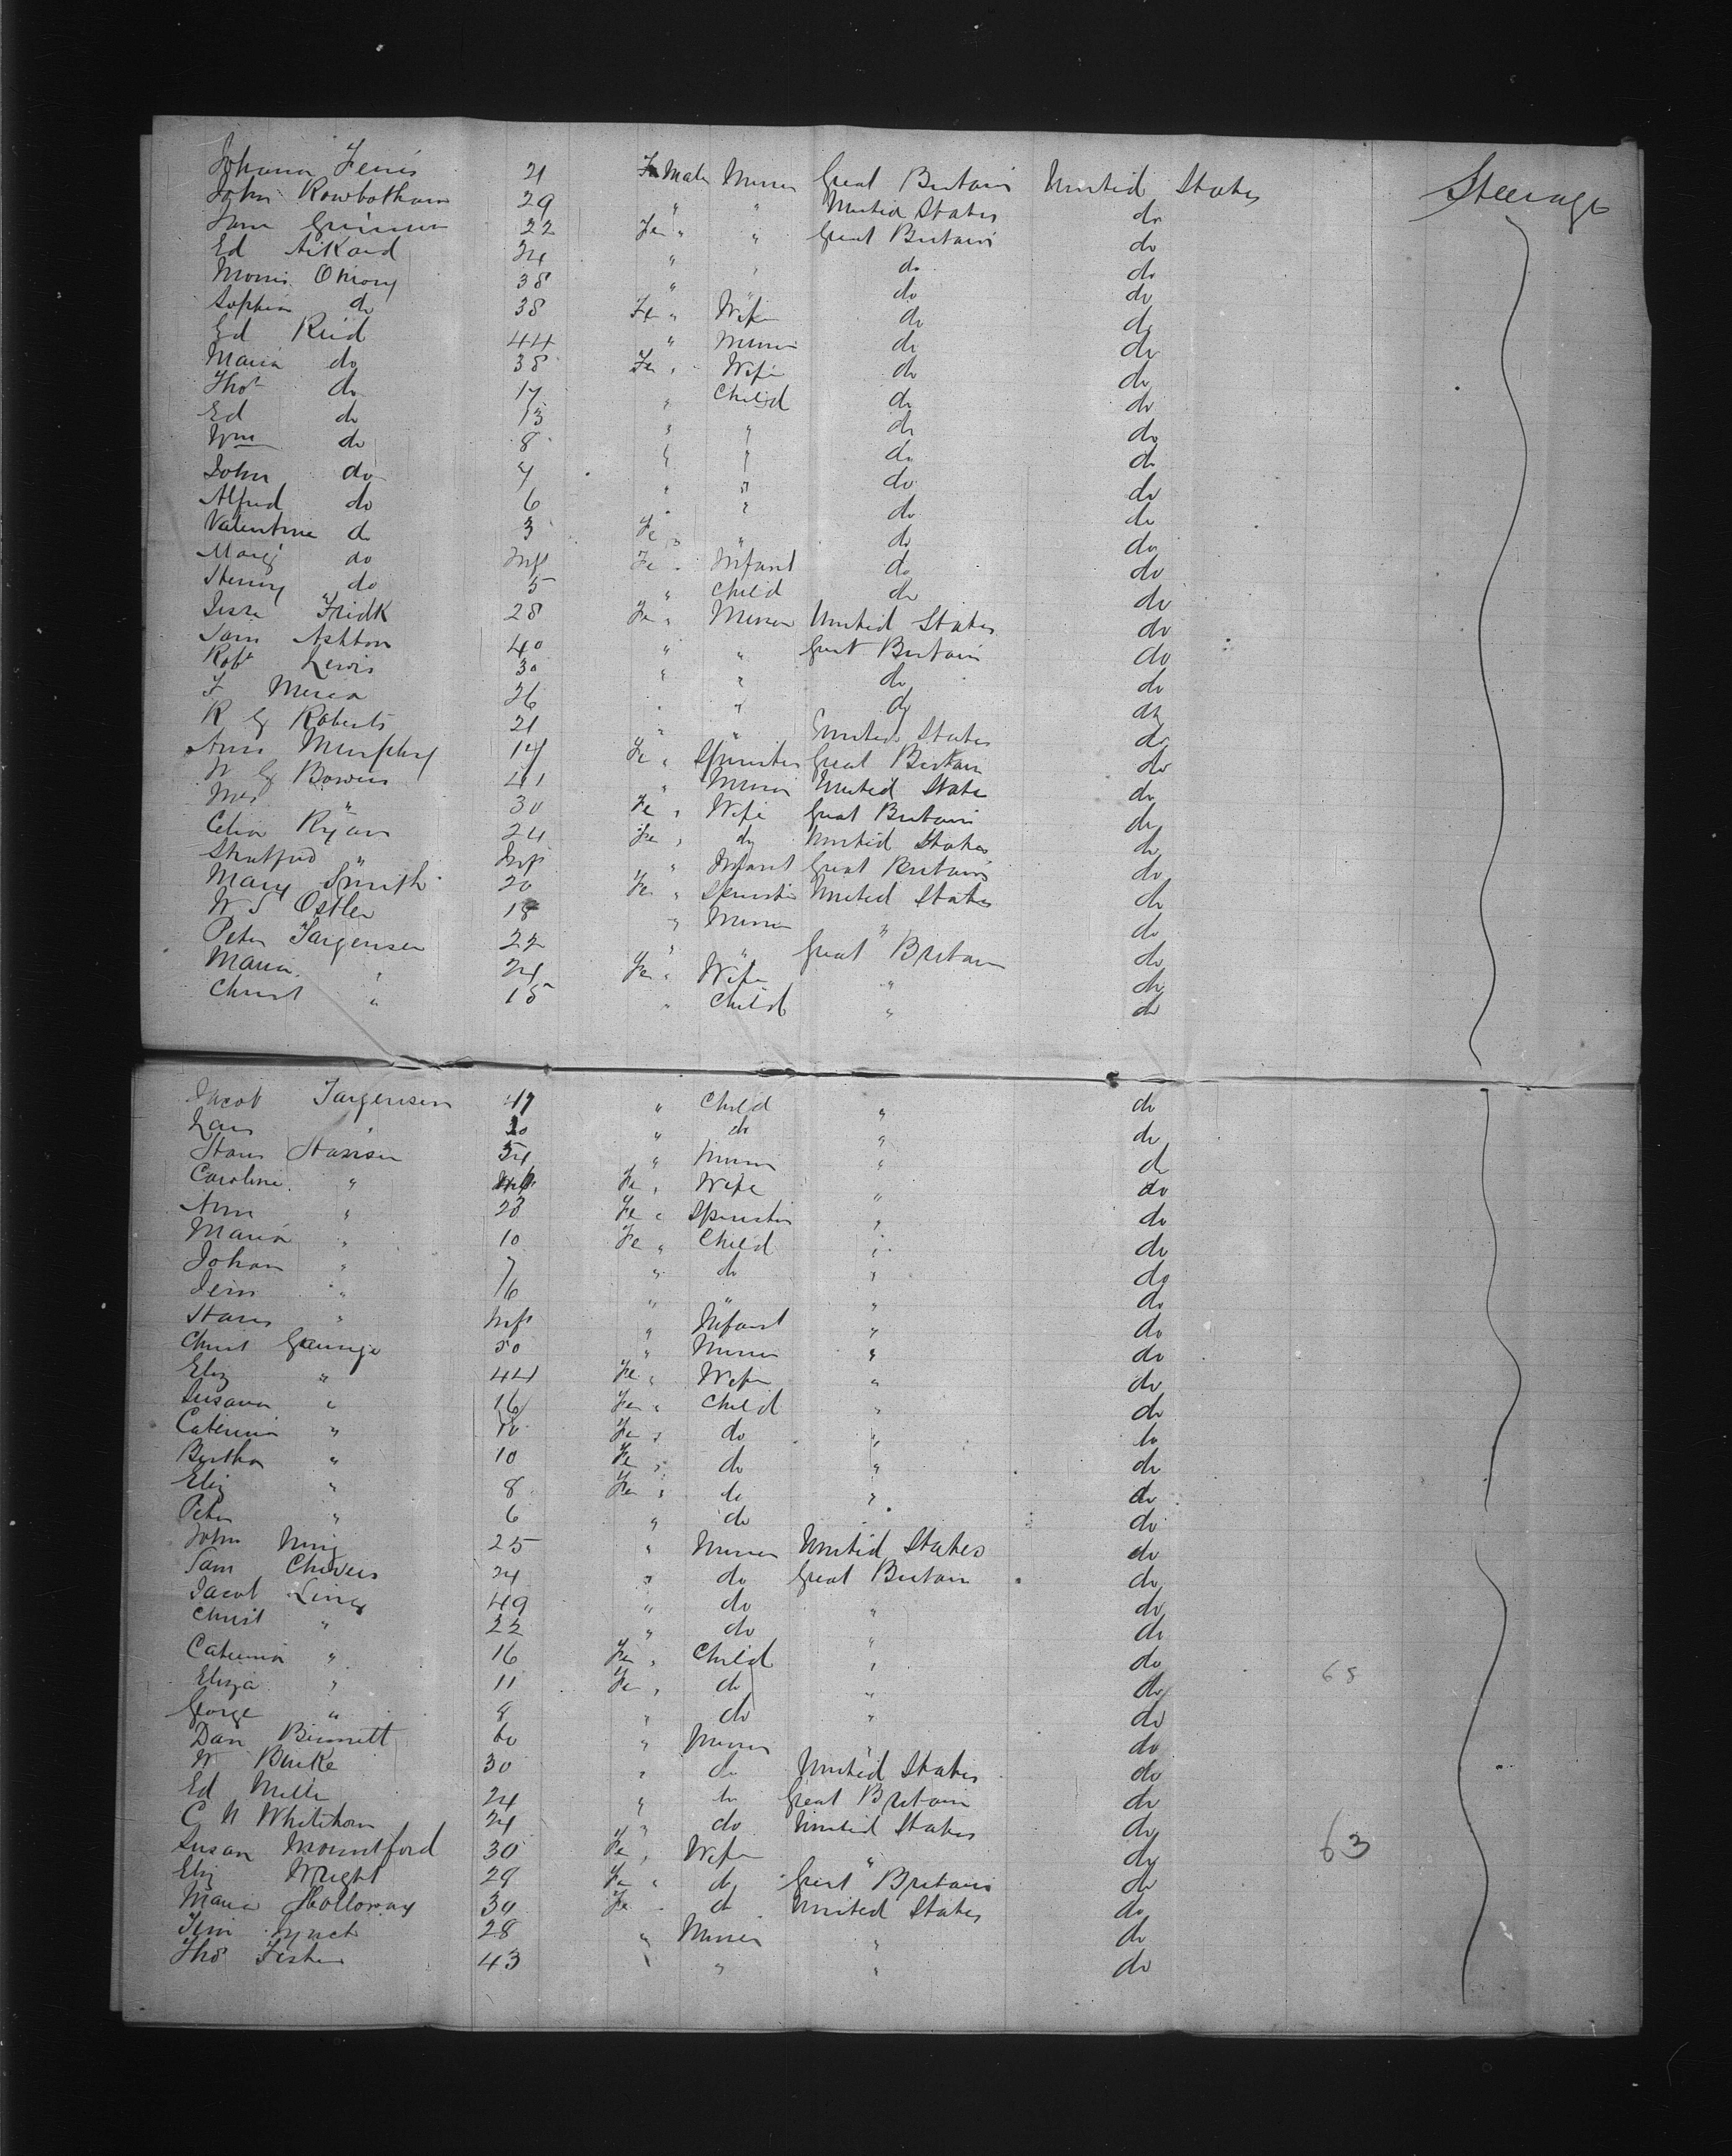 Johana Fenis 21 Fe Male Miner Great Britain United States Steerage
John Rowbotham 29 " " United States do
22 Fe " " Great Britain do
Ed 24 " " do do
Morris 38 " do do
Sophia do 38 Fe " Wife do do
Ed Reid 44 " Miner do do
Maria do 38 Fe " Wife do do
Thos do 17 " Child do do
Ed do 13 " " do do
Wm do 8 " " do do
John do 7 " " do do
Alfred do 6 " " do do
Valentine do 3 Fe " " do do
Mary do Inft Fe " Infant do do
Henry do 5 " Child do do
Fridk 28 Fe " Miner United States do
Sam Ashton 40 " " Great Britain do
Robt Lewis 30 " " do do
F 26 " " do do
R G Roberts 21 " " United States do
Ann Murphey 17 Fe " Spinster Great Britain do
W G Bowers 41 " Miner United State do
Mrs " 30 Fe " Wife Great Britain do
Celia Ryan 24 Fe " do United States do
" Inft " Infant Great Britain do
Mary Smith 20 Fe " Spinster United States do
W S Ostler 18 " Miner " do
Peter Jargensen 22 " " Great Britain do
Maria " 24 Fe " Wife " do
Christ " 15 " Child " do
Jacob Jargensen " Child " do
Lars " do " do
Hans Hansen 54 " Miner " do
Caroline " Fe " Wife " do
Ann " 23 Fe " Spinster " do
Maria " 10 Fe " Child " do
Johan " 7 " do " do
" 6 " " " do
Hans " Inft " Infant " do
Christ 50 " Miner " do
Eliz " 44 Fe " Wife " do
Susana " 16 Fe " Child " do
Caterina " Fe " do " do
Bertha " 10 Fe " do " do
Eliz " 8 Fe " do " do
Peter " 6 " do " do
John 25 " Miner United States do
Sam Chivers 24 " do Great Britain do
Jacob Ling 49 " do " do
Christ " 22 " do " do
Caterina " 16 Fe " Child " do 68
Eliza " 11 Fe " do " do
George " 8 " do " do
Dan Bennett 60 " Miner " do
W Burke 30 " do United States do
Ed 24 " do Great Britain do
C N 24 " do United States do
Susan Mountford 30 Fe " Wife " do 63
Eliz Wright 29 Fe " do Great Britain do
Maria Holloway 30 Fe " do United States do
Lynch 28 " Miner " do
Thos 43 " " " do